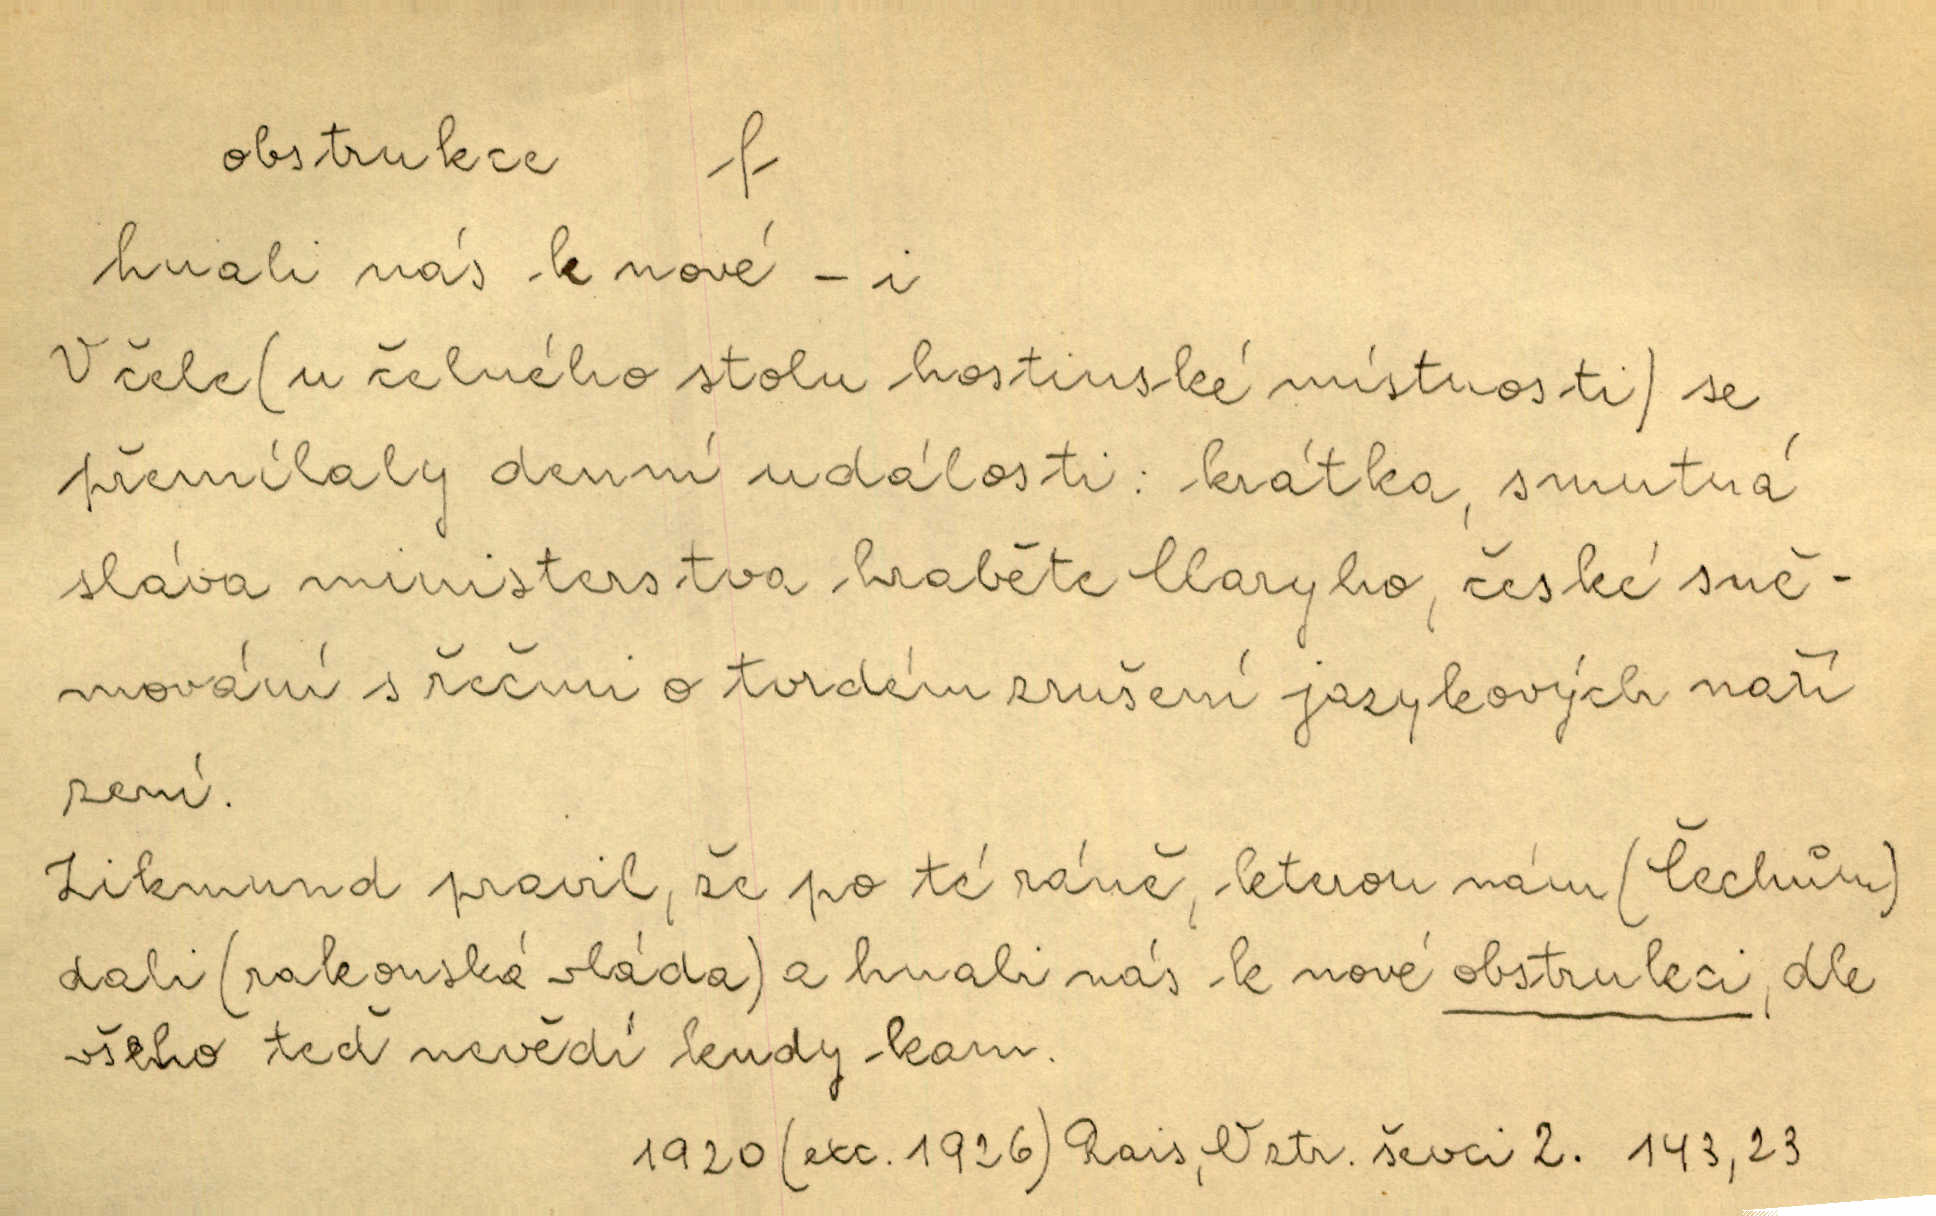 obstrukce f
hnali nás k nové – i
V čele (u čelného stolu hostinské místnosti) se
přemílaly denní události: krátká, smutná
sláva ministerstva hraběte Claryho, české sně-
mování s řečmi o tvrdém zrušení jazykových naří
zení.
Zikmund pravil, že po té ráně, kterou nám (Čechům)
dali (rakouská vláda) a hnali nás k nové obstrukci, dle
všeho teď nevědí kudy kam.
1920 (exc. 1926) Rais, O ztr. ševci 2. 143,23